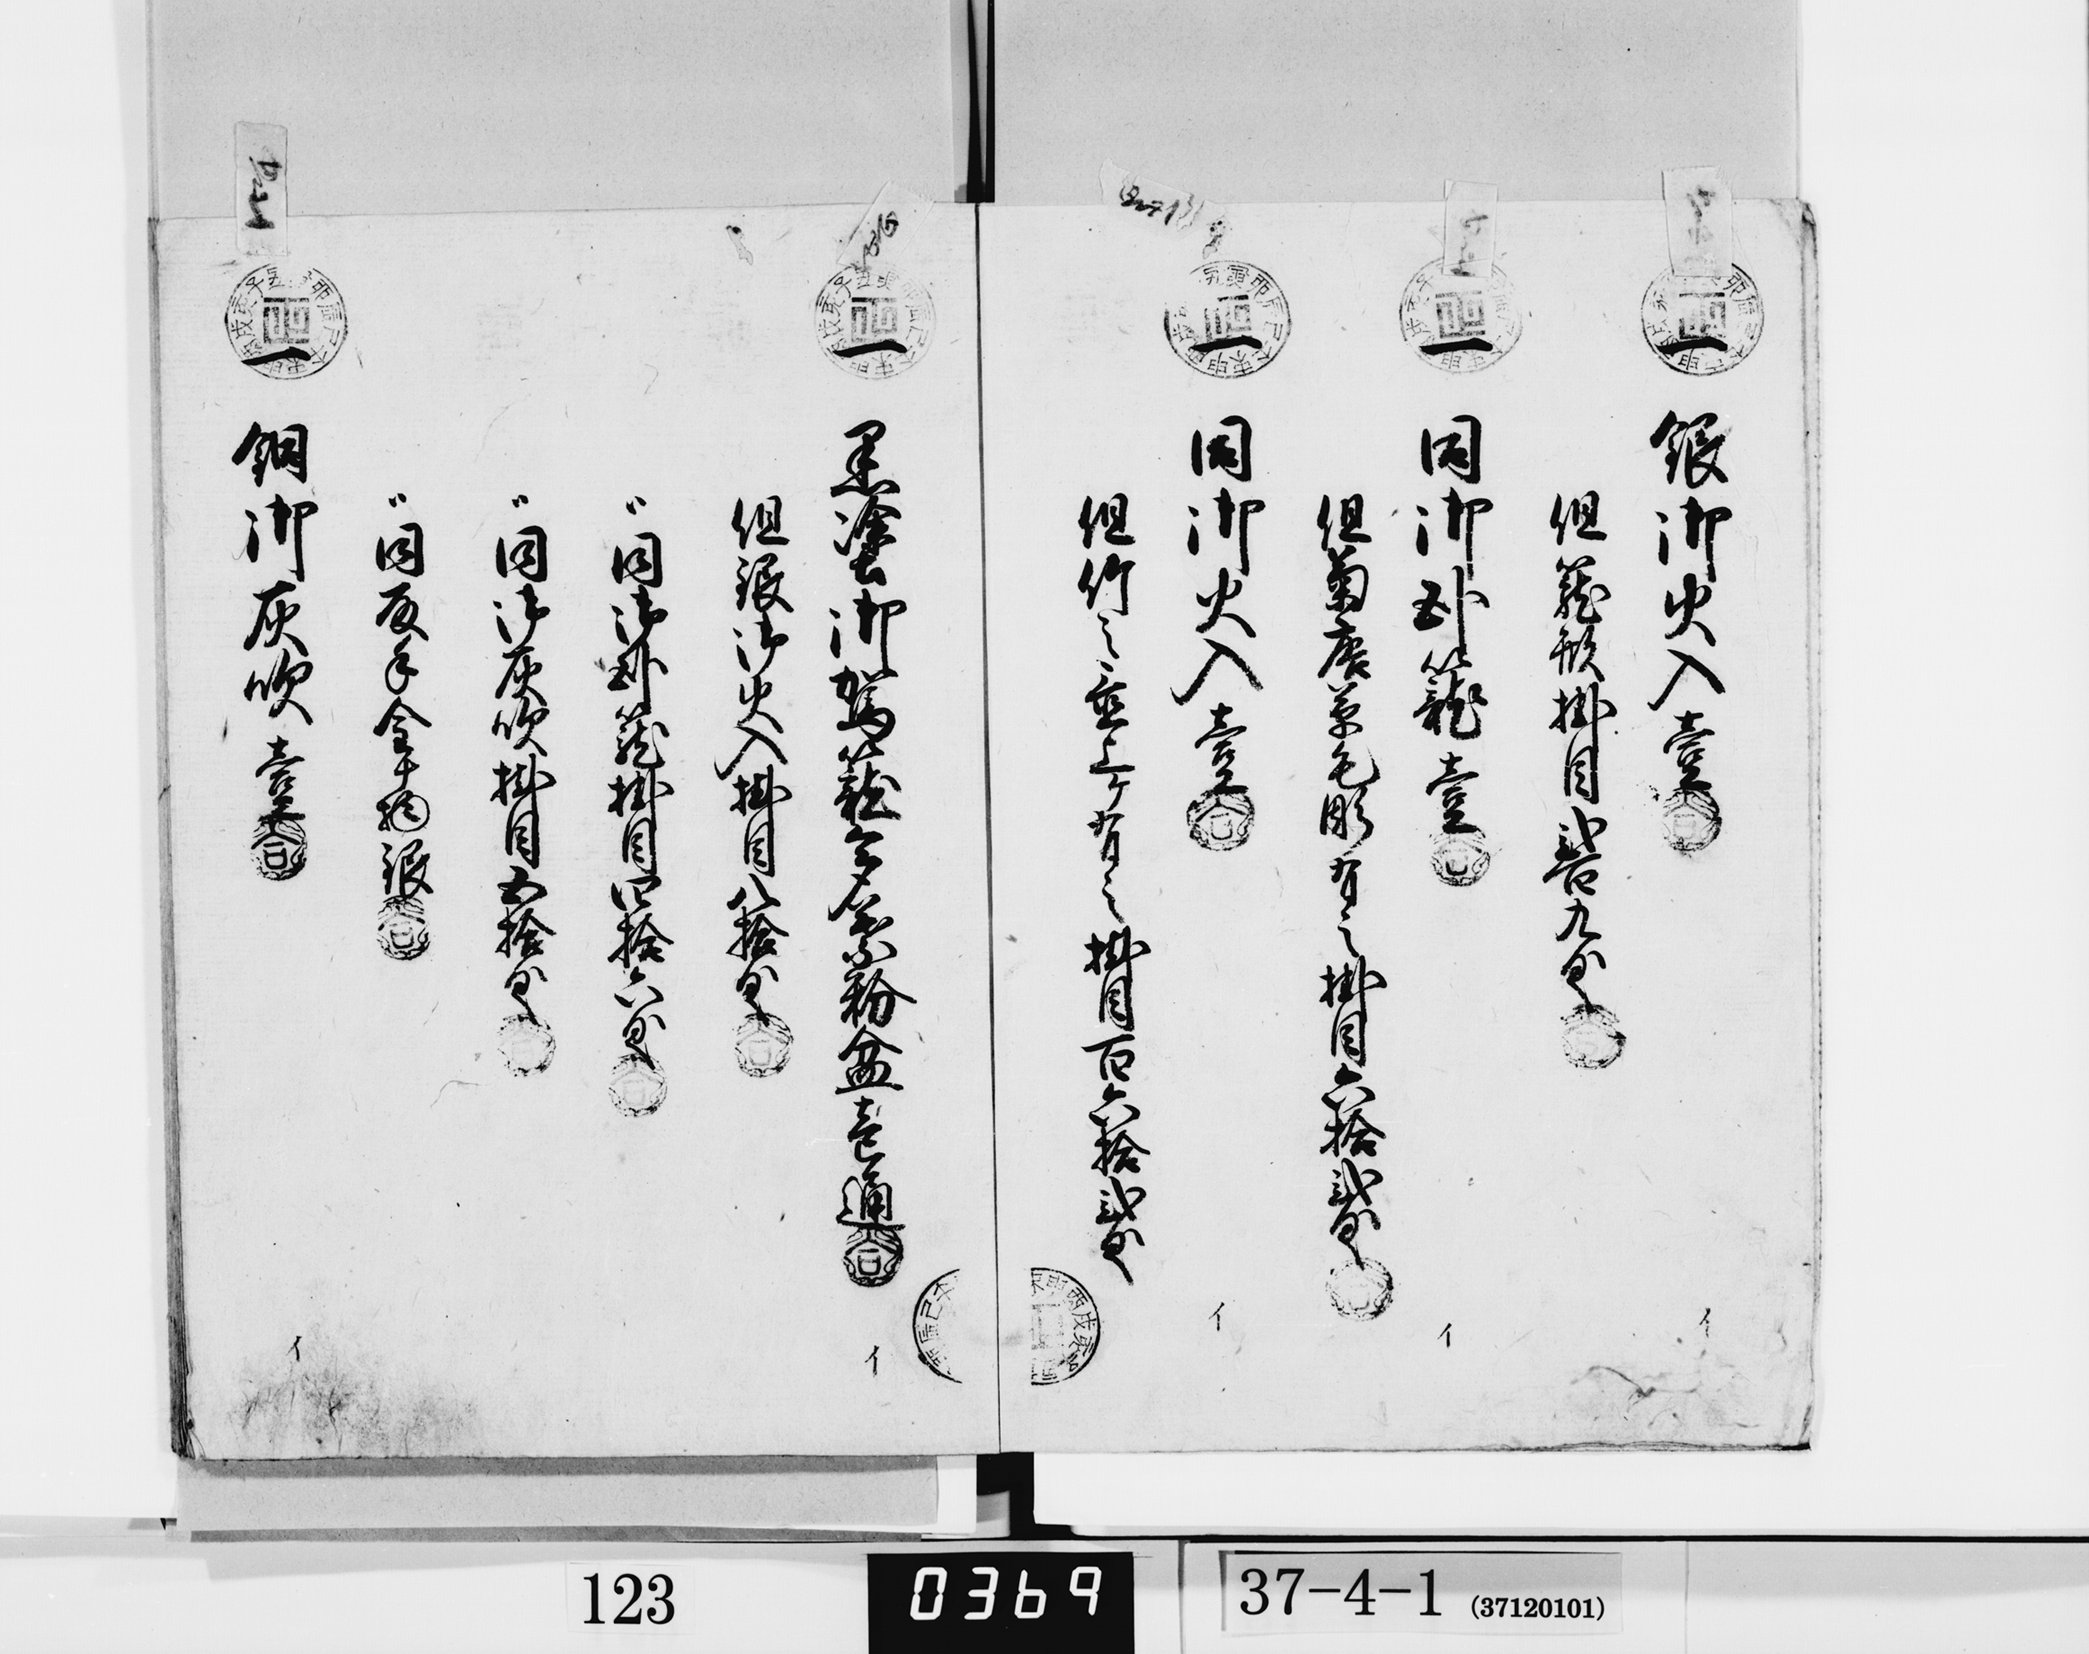 一 銀御火入壹
但籠形掛目貳百九匁
一 同御卧籠壹
但菊唐草毛彫有之掛目六拾貳匁
一 同御火入壹
但竹之有之掛目百六拾貳匁
一 黒塗御駕籠多葉粉盆壱通
但銀御火入掛目八拾匁
〃同御卧籠掛目四拾六匁
〃同御灰吹掛目五拾匁
〃同金物銀
一 銅御灰吹壹
イ
イ
イ
イ
イ
123
0369
37-4-1 (37120101)